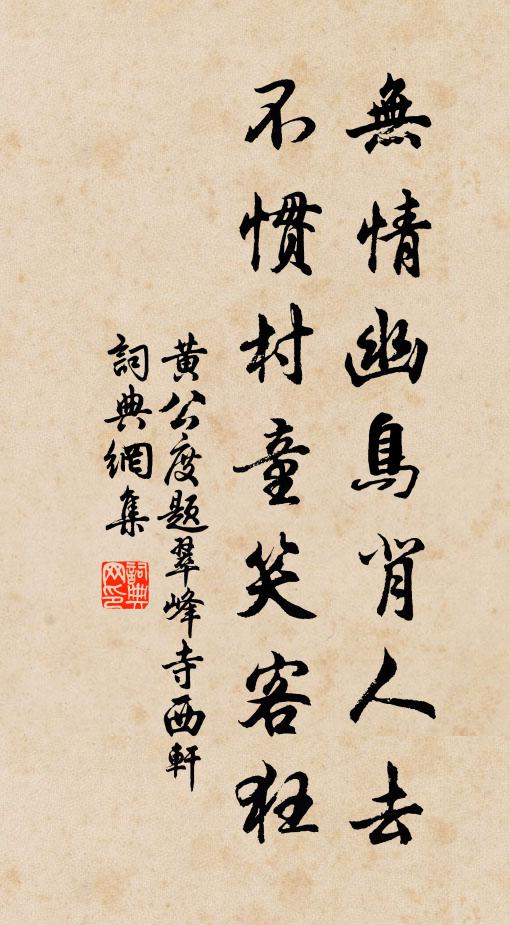 無情幽鳥背人去
不慣村童笑客狂
黄公度题翠峰寺西軒
詞典網集
詞典网印